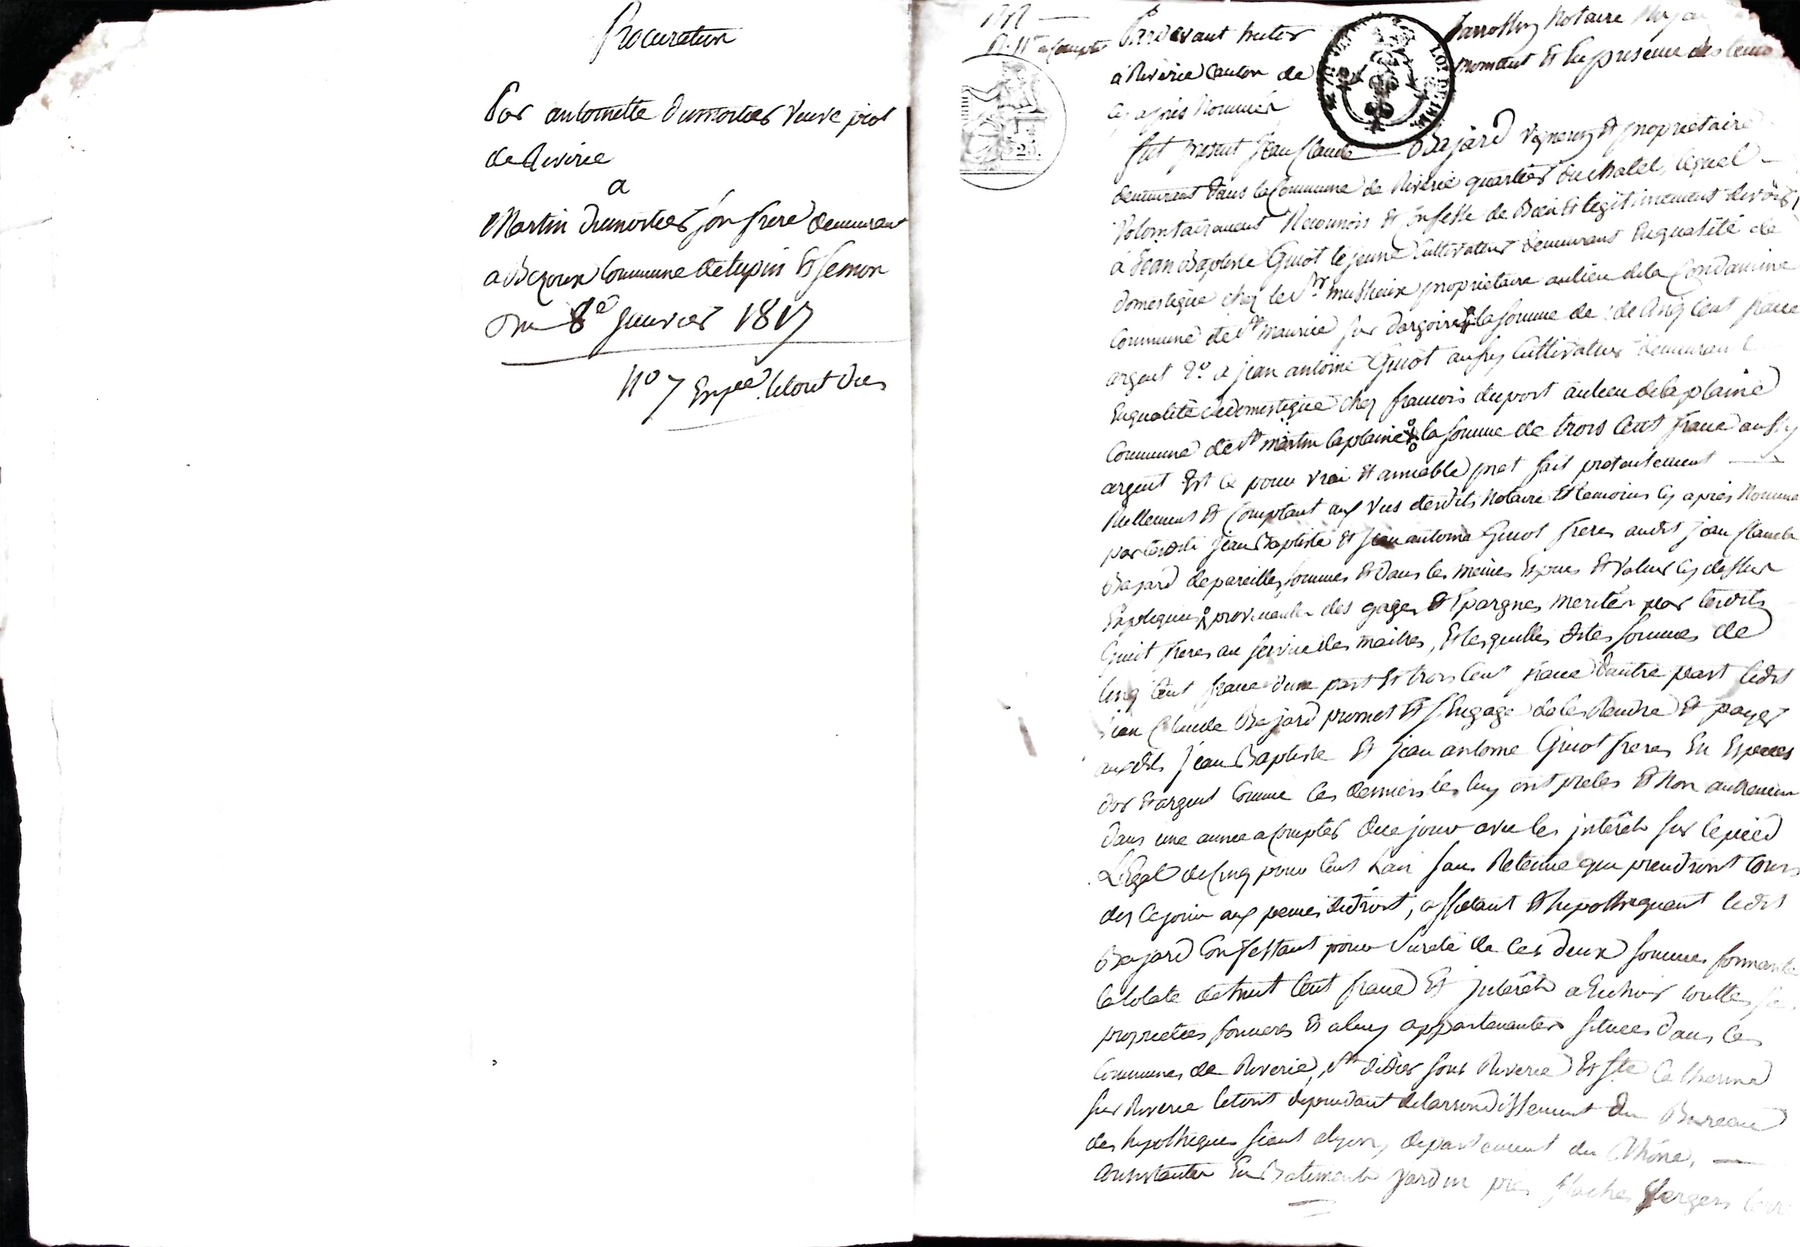 Procuration
Par antoinette Dumortier veuve piot
de Riverie
a
Martin Dumortier son frere demeurant
a Bezoux Commune de tupin Et Semon
Du 8e janvier 1817
No 7 Expee. letout Due
Pardevant
Notaire
à Riverie Canton de mornant Et En presence des temoins
Cy après Nommés
fut present Jean Claude Bajard Vigneron Et proprietaire
demeurant dans la Commune de Riverie quartier du chatel, lequel
Volontairement Reconnois Et Confesse de Bien Et legitimement devoir 1°
à Jean Baptiste Guiot le jeune Cultivateur demeurant En qualité de
domestique chez le Sr. mussieux proprietaire au lieu de la Condamine
Commune de St maurice sur dargoire la somme de : de Cinq Cent franc
argent 2° à jean antoine Guiot aussy Cultivateur demeurant
En qualité de domestique chez francois duport au lieu de la plaine
Commune de St martin laplaine la somme de trois Cent franc aussy
argent Et Ce pour vrai Et amiable pret fait presentement
Reellement Et Comptant aux Vus desdits Notaire Et temoins Cy après Nommé
par lesdits Jean Baptiste Et Jean antoine Guiot freres audit jean Claude
Bajard de pareilles sommes Et dans les memes Especes Et Valeur Cy dessus
Expliquées provenantes des gages Et Epargnes merités par lesdits
Guiot freres au service des maitres, Et lesquelles dites sommes de
Cinq Cent franc d'une part Et trois Cent franc d'autre part ledit
Jean Claude Bajard promet Et s'Engage de les Rendre Et payer
auxdits Jean Baptiste Et jean antoine Guiot freres En Especes
d'or Et argent Comme Ces derniers les luy ont pretés Et Non autrement
dans une annee a Compter de ce jour avec les intérêts sur le pied
Légal de Cinq pour Cent L'an sans Retenue qui prendront Cours
des Ce jour aux peines de droit, affectant Et hypothequant ledit
Bajard Confessant pour Sureté de Ces deux sommes formant
la totale de huit Cent franc Et intérêts a Echoir touttes
proprietées foncieres Et a luy appartenantes situées dans les
Communes de Riverie, St didier sous Riverie Et Ste Catherine
sur Riverie le tout dependant de l'arrondissement du Bureau
des hypotheques seant a lyon, departement du Rhône,
Consistantes En Batiments Jardin près Vergers